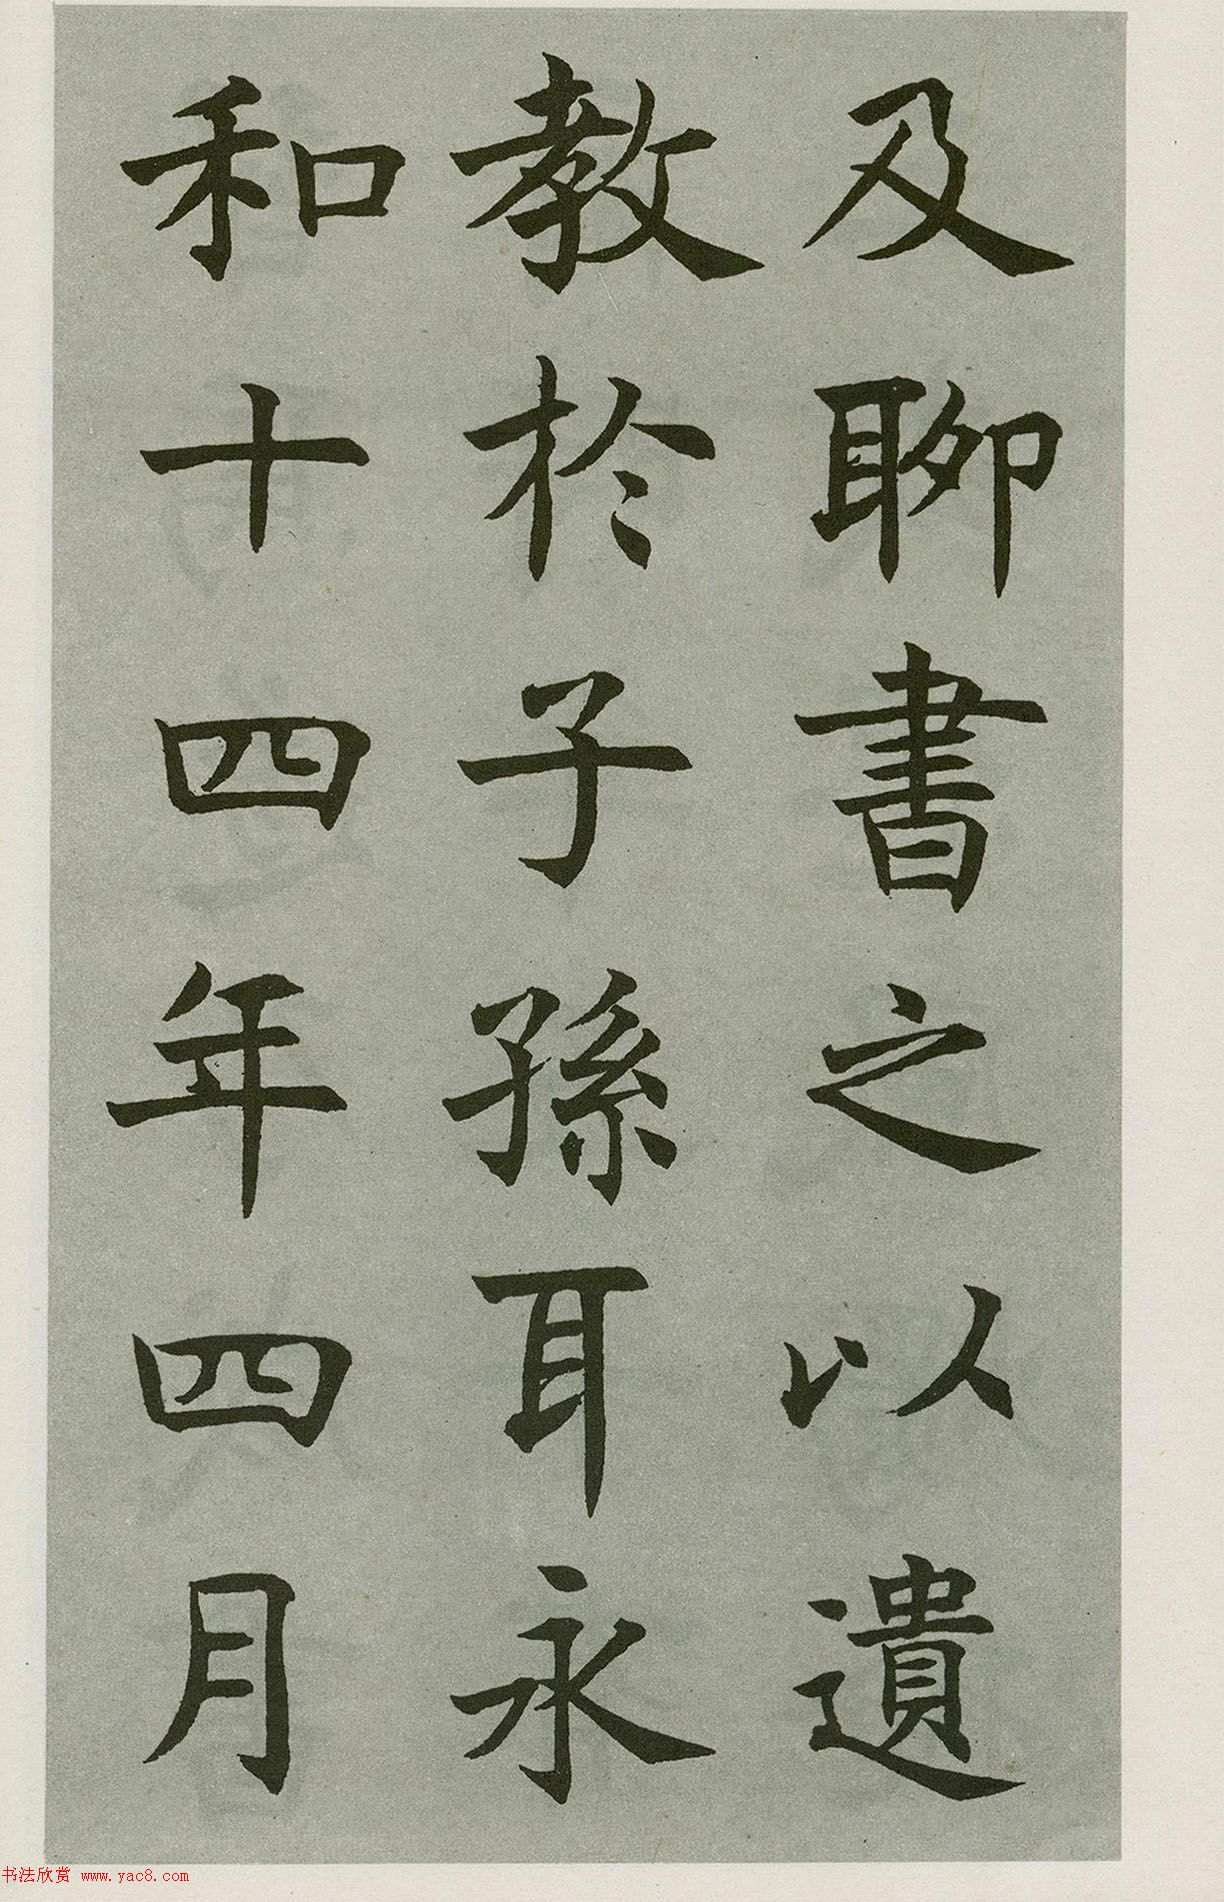 及聊書之以遺
教於子孫耳永
和十四年四月
书法欣赏 www.yac8.com